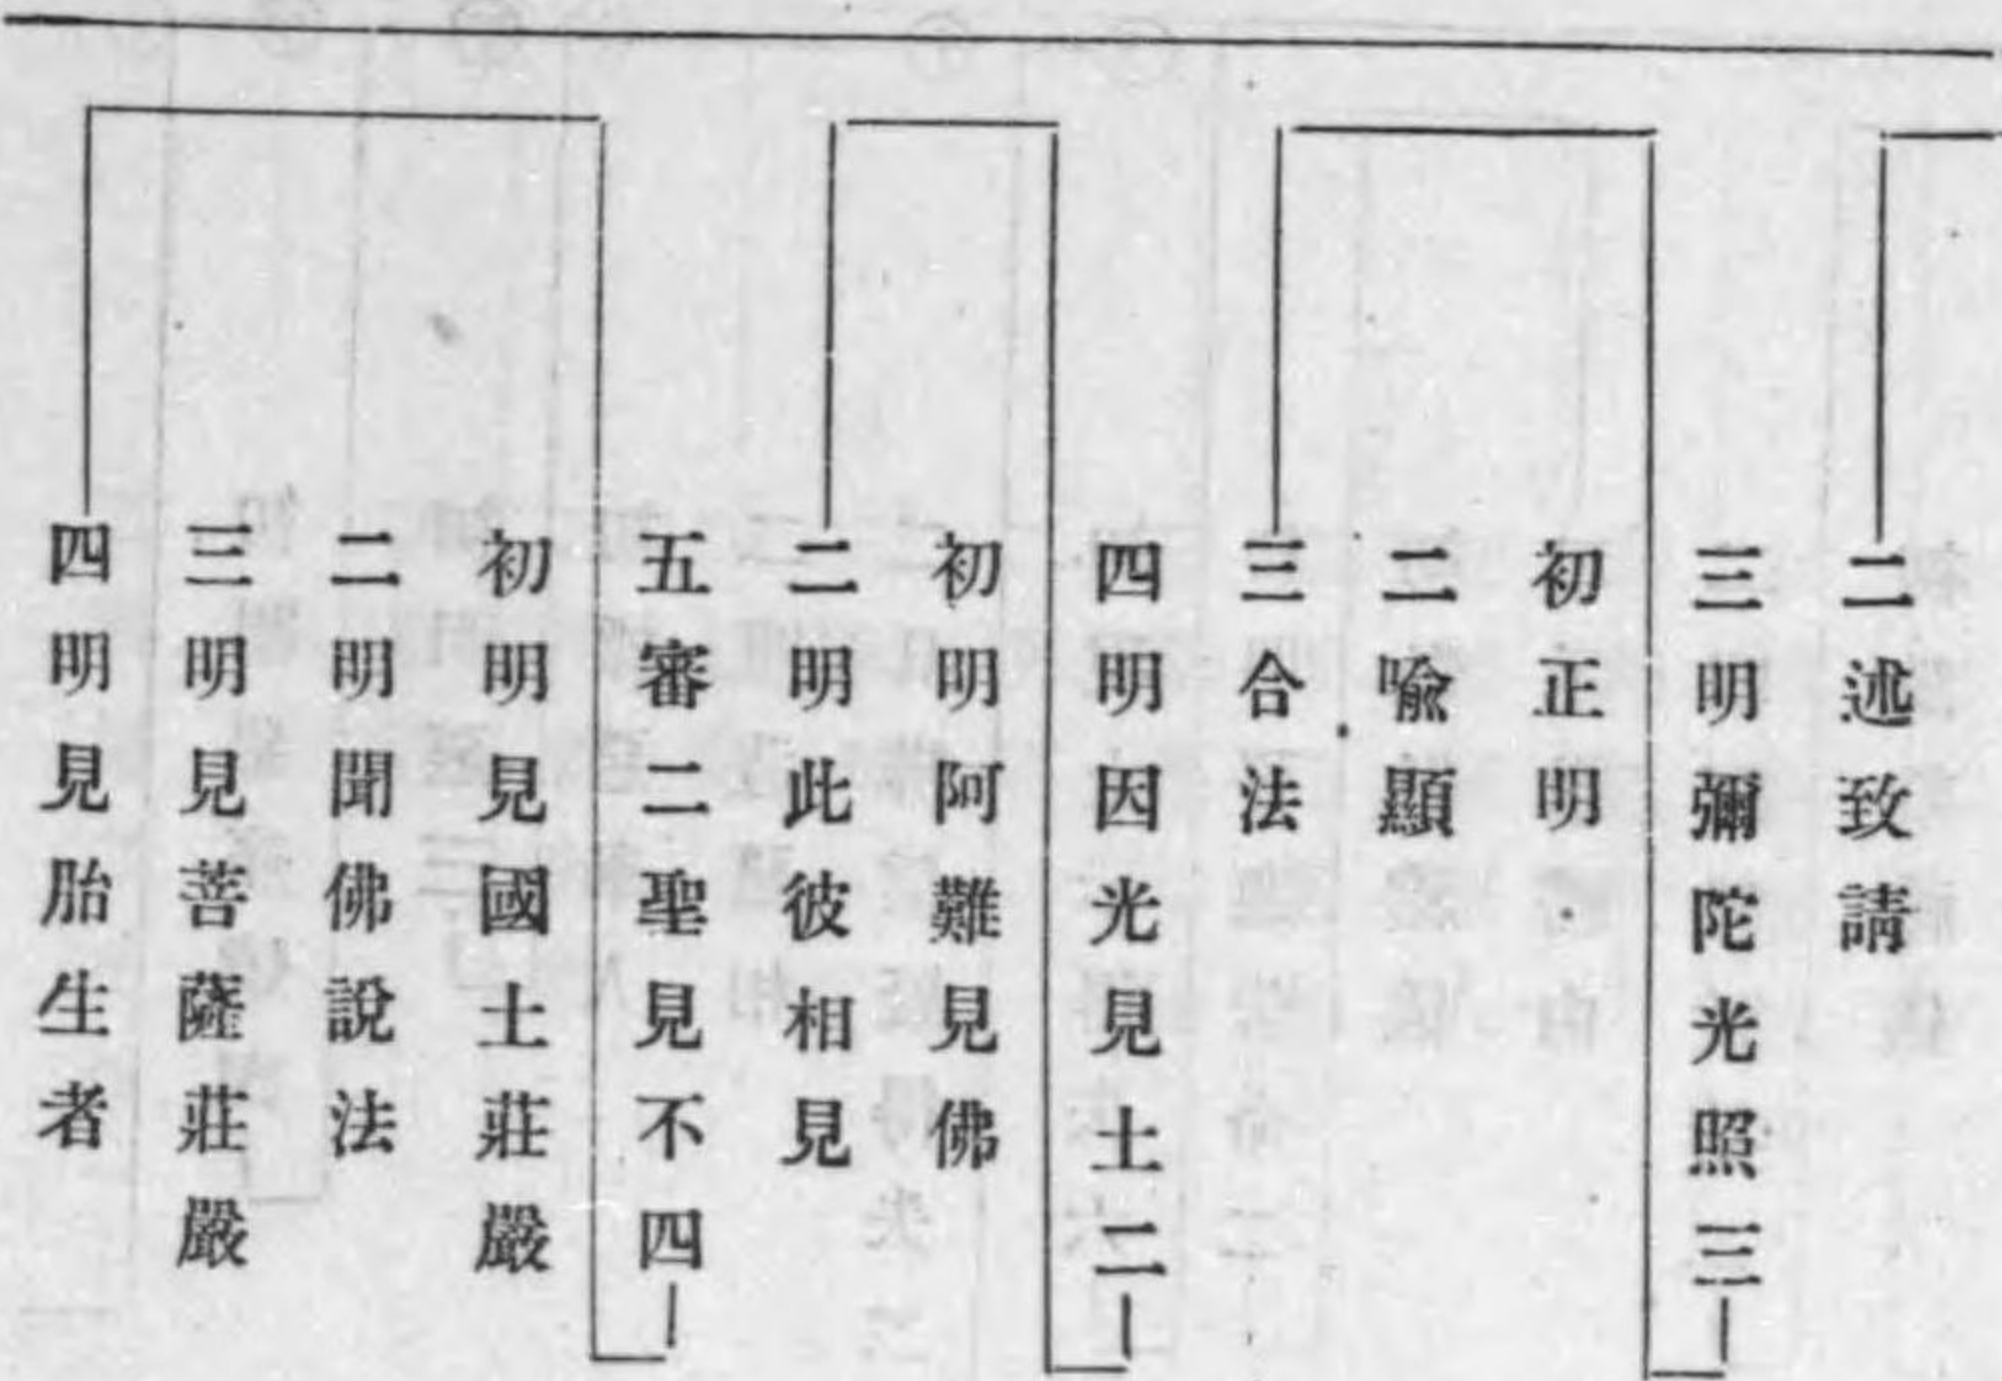 二述致請
三明彌陀光照三
初正明
二喩顯
三合法
四明因光見土二
初明阿難見佛
二明此彼相見
五審二聖見不四
初明見國土莊嚴
二明聞佛說法
三明見菩薩莊嚴
四明見胎生者